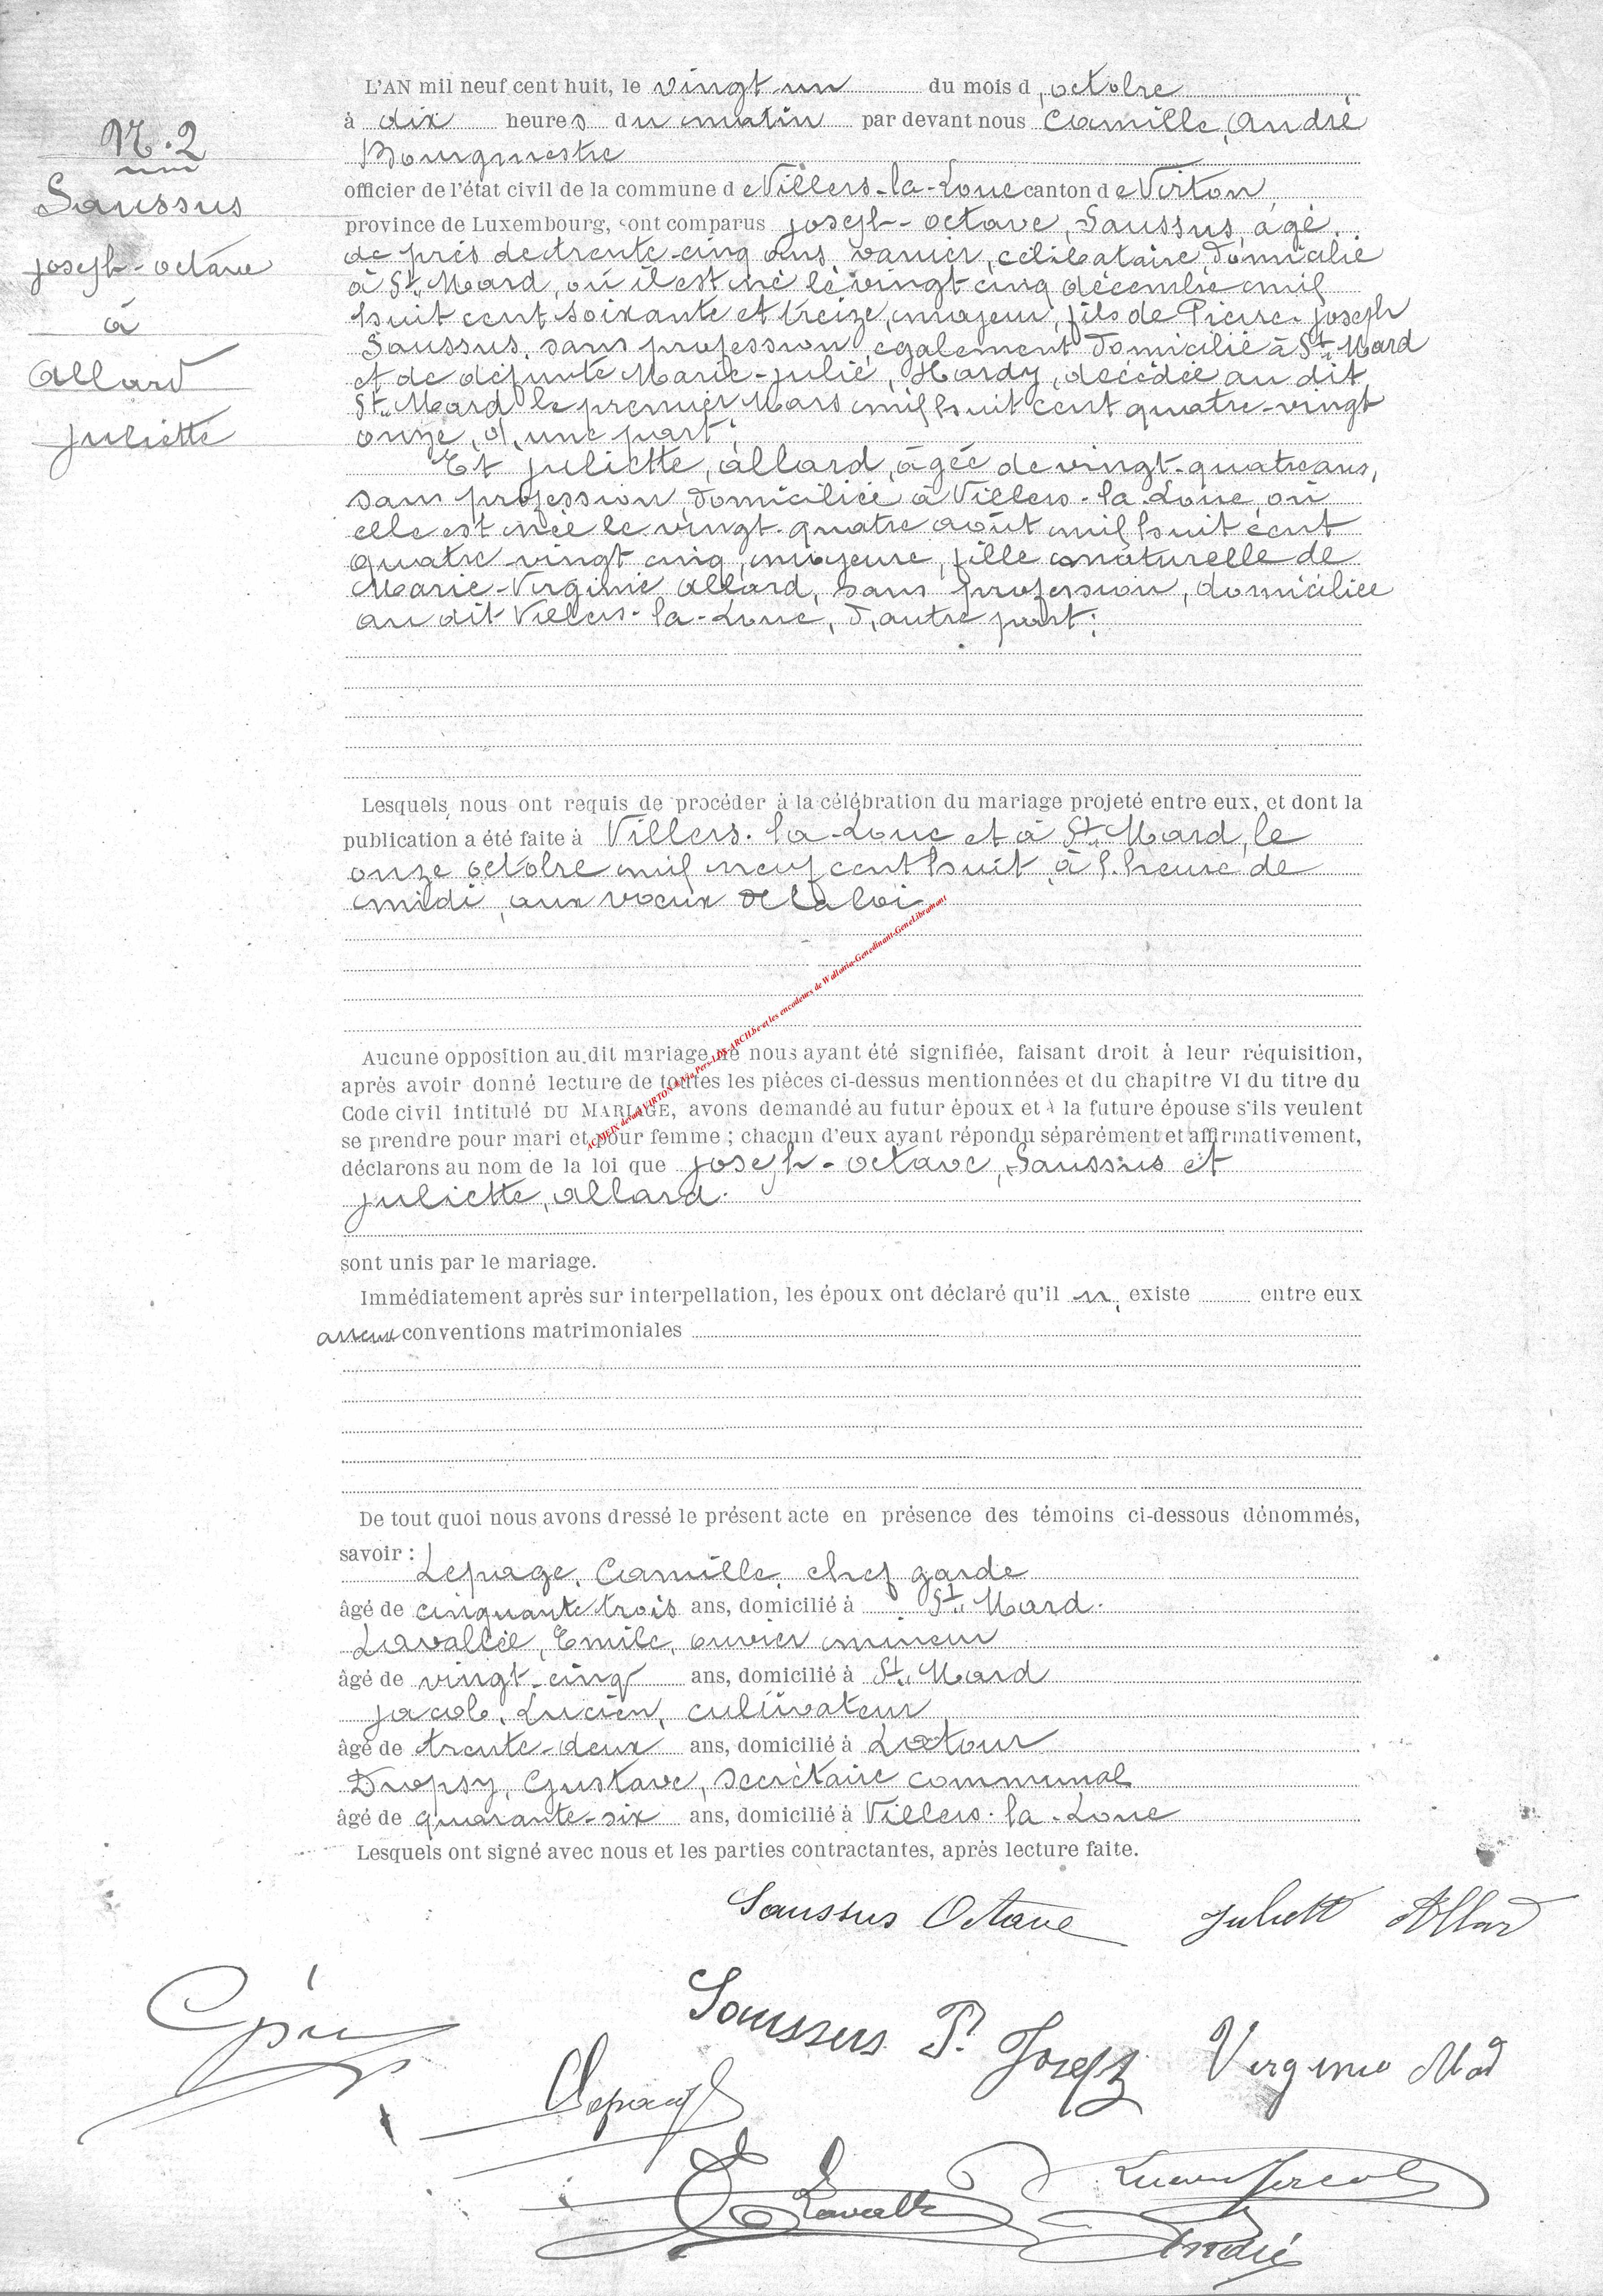 N. 2
Saussus
joseph-octave
à
allard
juliette
L'AN mil neuf cent huit, le vingt un du mois d, octobre
à dix heures du matin par devant nous Camille, André
Bourgmestre
officier de l'état civil de la commune de Villers-la-Loue canton de Virton,
province de Luxembourg, sont comparus joseph-octave, Saussus, âgé
de près de trente-cinq ans, vanier, célibataire, domicilié
à St. Mard, où il est né le vingt cinq décembre mil
huit cent soixante et treize, majeur, fils de Pierre-joseph
Saussus, sans profession, également domicilié à St. Mard
et de défunte Marie-julie, Hardy, décédée au dit
St. Mard le premier Mars mil huit cent quatre-vingt
onze, d'une part;
Et juliette, allard, âgée de vingt-quatre ans,
sans profession, domiciliée à Villers-la-Loue, où
elle est née le vingt-quatre août mil huit cent
quatre vingt cinq, majeure, fille naturelle de
Marie-Virginie allard, sans profession, domiciliée
au dit Villers-la-Loue, d'autre part;
Lesquels nous ont requis de procéder à la célébration du mariage projeté entre eux, et dont la
publication a été faite à Villers-la-Loue et à St. Mard, le
onze octobre mil neuf cent huit à l'heure de
midi, aux vœux de la loi
AC MEIX devant VIRTON via Pers-LUX-ARCH.be et les encodeurs de Wallonia-Genedinant-GeneLibramont
Aucune opposition au dit mariage ne nous ayant été signifiée, faisant droit à leur réquisition,
après avoir donné lecture de toutes les pièces ci-dessus mentionnées et du chapitre VI du titre du
Code civil intitulé DU MARIAGE, avons demandé au futur époux et à la future épouse s'ils veulent
se prendre pour mari et pour femme ; chacun d'eux ayant répondu séparément et affirmativement,
déclarons au nom de la loi que joseph-octave, Saussus et
juliette, allard.
sont unis par le mariage.
Immédiatement après sur interpellation, les époux ont déclaré qu'il n, existe entre eux
aucune conventions matrimoniales
De tout quoi nous avons dressé le présent acte en présence des témoins ci-dessous dénommés,
savoir : Lepage, Camille, chef garde
âgé de cinquante trois ans, domicilié à St. Mard.
Lavallée, Emile, ouvrier mineur
âgé de vingt-cinq ans, domicilié à St. Mard
jacob, Lucien, cultivateur
âgé de trente-deux ans, domicilié à Latour
Dropsy, Gustave, secrétaire communal
âgé de quarante-six ans, domicilié à Villers-la-Loue
Lesquels ont signé avec nous et les parties contractantes, après lecture faite.
Saussus Octave Juliett Allard
Saussus P. Joseph Virginie
CLepage
Lavallée Lucien Jacob
André